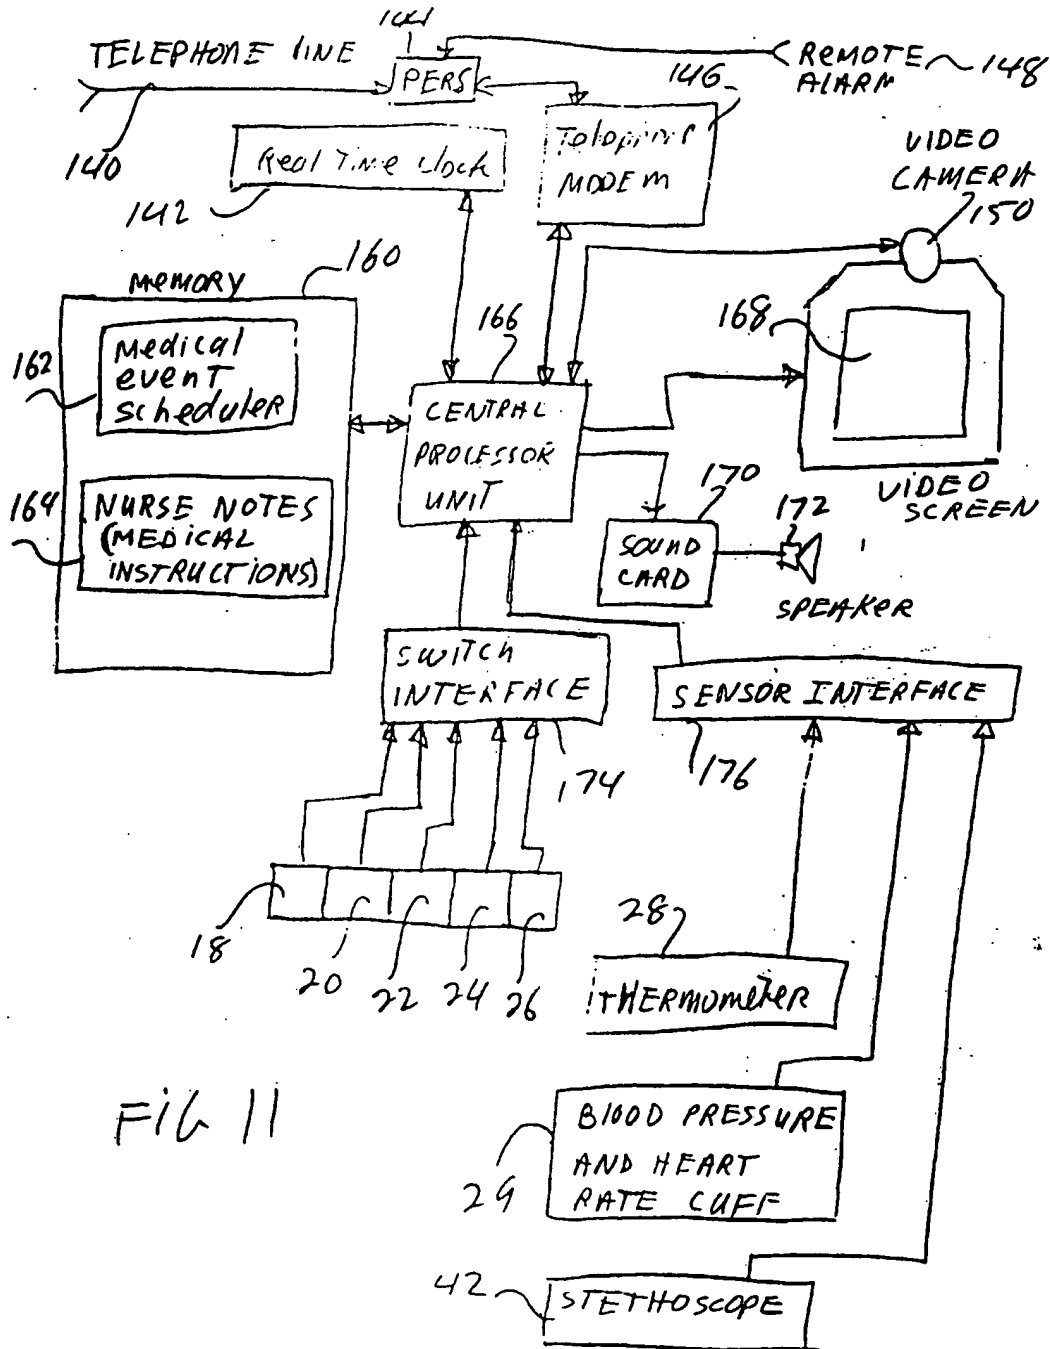 144
TELEPHONE LINE
PERS
REMOTE
ALARM
148
146
140
Real Time Clock
142
MODEM
VIDEO
CAMERA
150
MEMORY
160
162
Medical
event
scheduler
164
NURSE NOTES
(MEDICAL
INSTRUCTIONS)
166
CENTRAL
PROCESSOR
UNIT
168
VIDEO
SCREEN
170
SOUND
CARD
172
SPEAKER
SWITCH
INTERFACE
174
SENSOR INTERFACE
176
18
20
22
24
26
28
THERMOMETER
FIG 11
29
BLOOD PRESSURE
AND HEART
RATE CUFF
42
STETHOSCOPE